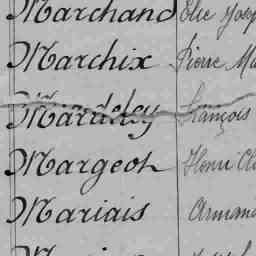 Marchand Elie Josep
Marchix Pierre Ma
Mardeley François
Margeot Henri Cl
Mariais Arman